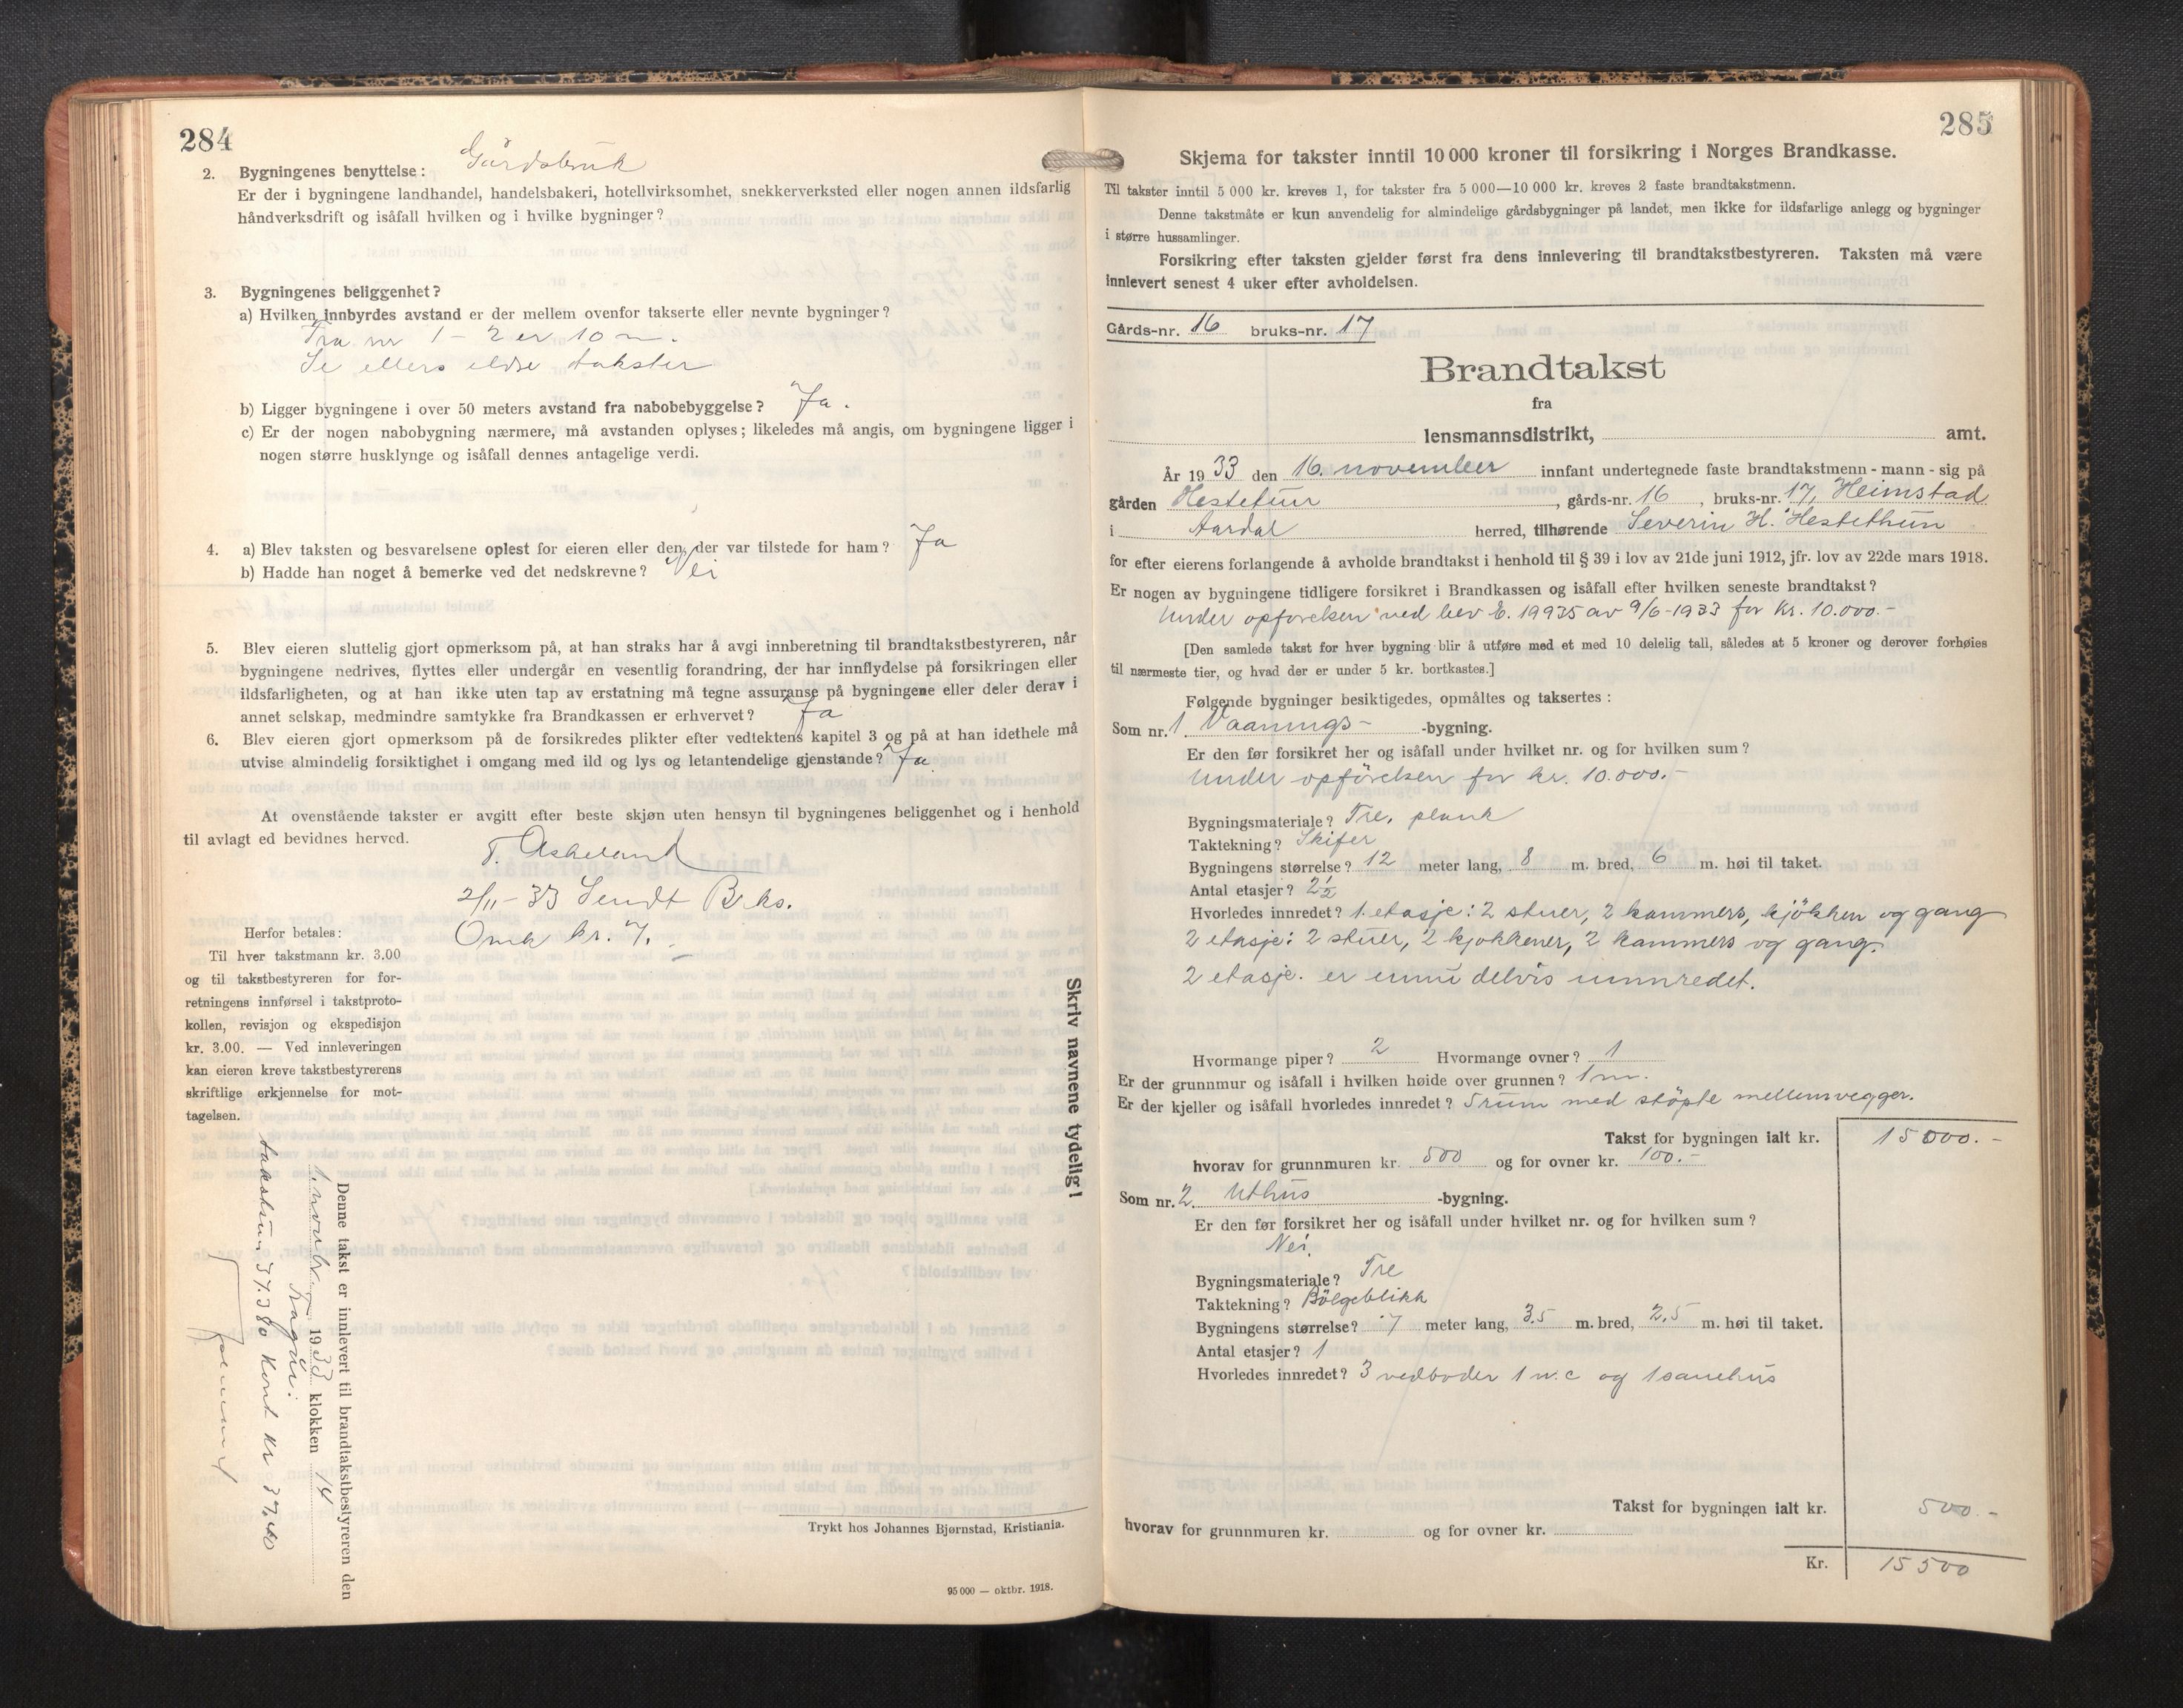 284
2. Bygningenes benyttelse: Gårdsbruk
Er der i bygningene landhandel, handelsbakeri, hotellvirksomhet, snekkerverksted eller nogen annen ildsfarlig
håndverksdrift og isåfall hvilken og i hvilke bygninger?
3. Bygningenes beliggenhet?
a) Hvilken innbyrdes avstand er der mellem ovenfor takserte eller nevnte bygninger?
Fra nr 1 - 2 er 10 m.
Se ellers eldre takster
b) Ligger bygningene i over 50 meters avstand fra nabobebyggelse? Ja.
c) Er der nogen nabobygning nærmere, må avstanden oplyses; likeledes må angis, om bygningene ligger i
nogen større husklynge og isåfall dennes antagelige verdi.
4. a) Blev taksten og besvarelsene oplest for eieren eller den, der var tilstede for ham? Ja
b) Hadde han noget å bemerke ved det nedskrevne? Nei
5. Blev eieren sluttelig gjort opmerksom på, at han straks har å avgi innberetning til brandtakstbestyreren, når
bygningene nedrives, flyttes eller undergår en vesentlig forandring, der har innflydelse på forsikringen eller
ildsfarligheten, og at han ikke uten tap av erstatning må tegne assuranse på bygningene eller deler derav i
annet selskap, medmindre samtykke fra Brandkassen er erhvervet? Ja
6. Blev eieren gjort opmerksom på de forsikredes plikter efter vedtektens kapitel 3 og på at han idethele må
utvise almindelig forsiktighet i omgang med ild og lys og letantendelige gjenstande? Ja
At ovenstående takster er avgitt efter beste skjøn uten hensyn til bygningenes beliggenhet og i henhold
til avlagt ed bevidnes herved.
T. Askeland
2/11-33 Sendt Br.ks.
Omk kr. 7.-
Herfor betales:
Til hver takstmann kr. 3.00
og til takstbestyreren for for-
retningens innførsel i takstproto-
kollen, revisjon og ekspedisjon
kr. 3.00. — Ved innleveringen
kan eieren kreve takstbestyrerens
skriftlige erkjennelse for mot-
tagelsen.
Skriv navnene tydelig!
Denne takst er innlevert til brandtakstbestyreren den
1. novbr. 1933 klokken 14
takstsum 37.380 Kont Kr 37.40
Trykt hos Johannes Bjørnstad, Kristiania.
95 000 — oktbr. 1918.
285
Skjema for takster inntil 10 000 kroner til forsikring i Norges Brandkasse.
Til takster inntil 5 000 kr. kreves 1, for takster fra 5 000—10 000 kr. kreves 2 faste brandtakstmenn.
Denne takstmåte er kun anvendelig for almindelige gårdsbygninger på landet, men ikke for ildsfarlige anlegg og bygninger
i større hussamlinger.
Forsikring efter taksten gjelder først fra dens innlevering til brandtakstbestyreren. Taksten må være
innlevert senest 4 uker efter avholdelsen.
Gårds-nr. 16 bruks-nr. 17
Brandtakst
fra
lensmannsdistrikt, amt.
År 1933 den 16. november innfant undertegnede faste brandtakstmenn - mann - sig på
gården Hestetun, gårds-nr. 16, bruks-nr. 17, Heimstad
i Aardal herred, tilhørende Severin H. Hestethun
for efter eierens forlangende å avholde brandtakst i henhold til § 39 i lov av 21de juni 1912, jfr. lov av 22de mars 1918.
Er nogen av bygningene tidligere forsikret i Brandkassen og isåfall efter hvilken seneste brandtakst?
Under opførelsen ved bev E. 19935 av 9/6-1933 for kr. 10.000.-
[Den samlede takst for hver bygning blir å utføre med et med 10 delelig tall, således at 5 kroner og derover forhøies
til nærmeste tier, og hvad der er under 5 kr. bortkastes.]
Følgende bygninger besiktigedes, opmåltes og taksertes:
Som nr. 1 Vaanings- -bygning.
Er den før forsikret her og isåfall under hvilket nr. og for hvilken sum?
Under opførelsen for kr. 10.000.-
Bygningsmateriale? Tre, plank
Taktekning? Skifer
Bygningens størrelse? 12 meter lang, 8 m. bred, 6 m. høi til taket.
Antal etasjer? 2 1/2
Hvorledes innredet? 1. etasje: 2 stuer, 2 kammers, kjökken og gang
2 etasje: 2 stuer, 2 kjøkkener, 2 kammers og gang.
2 etasje. er ennu delvis uinnredet.
Hvormange piper? 2 Hvormange ovner? 1
Er der grunnmur og isåfall i hvilken høide over grunnen? 1 m.
Er der kjeller og isåfall hvorledes innredet? 5 rum med støpte mellemvegger.
Takst for bygningen ialt kr. 15 000.-
hvorav for grunnmuren kr. 500 og for ovner kr. 100.-
Som nr. 2. Uthus -bygning.
Er den før forsikret her og isåfall under hvilket nr. og for hvilken sum?
Nei.
Bygningsmateriale? Tre
Taktekning? Bölgeblikk
Bygningens størrelse? 7 meter lang, 3.5 m. bred, 2.5 m. høi til taket.
Antal etasjer? 1
Hvorledes innredet? 3 vedboder 1 w.c og 1 sauehus
Takst for bygningen ialt kr. 500.-
hvorav for grunnmuren kr. og for ovner kr.
Kr. 15 500